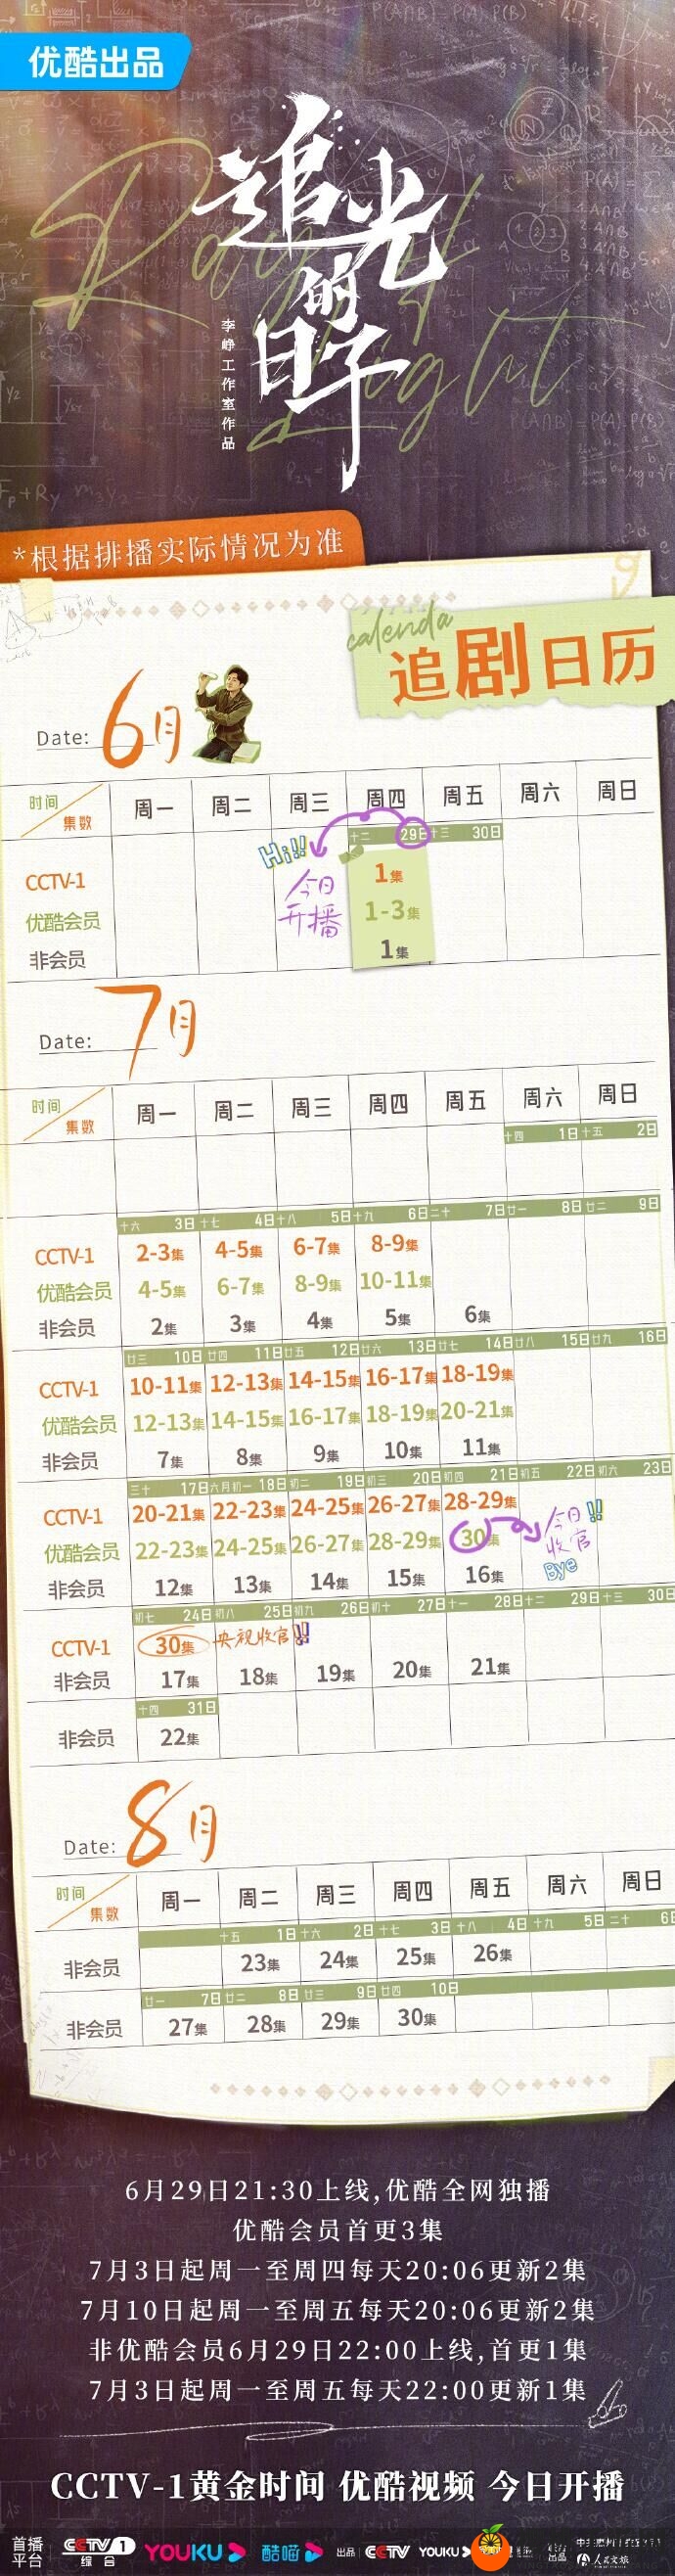 优酷出品
追光的日子
Ray of Light
李峥工作室作品
*根据排播实际情况为准
calenda
追剧日历
Date: 6月
时间 集数 周一 周二 周三 周四 周五 周六 周日
十二 29日 十三 30日
Hi!! 今日开播
CCTV-1 1集
优酷会员 1-3集
非会员 1集
Date: 7月
时间 集数 周一 周二 周三 周四 周五 周六 周日
十四 1日 十五 2日
十六 3日 十七 4日 十八 5日 十九 6日 二十 7日 廿一 8日 廿二 9日
CCTV-1 2-3集 4-5集 6-7集 8-9集
优酷会员 4-5集 6-7集 8-9集 10-11集
非会员 2集 3集 4集 5集 6集
廿三 10日 廿四 11日 廿五 12日 廿六 13日 廿七 14日 廿八 15日 廿九 16日
CCTV-1 10-11集 12-13集 14-15集 16-17集 18-19集
优酷会员 12-13集 14-15集 16-17集 18-19集 20-21集
非会员 7集 8集 9集 10集 11集
三十 17日 六月初一 18日 初二 19日 初三 20日 初四 21日 初五 22日 初六 23日
CCTV-1 20-21集 22-23集 24-25集 26-27集 28-29集
优酷会员 22-23集 24-25集 26-27集 28-29集 30集 今日收官!! Bye
非会员 12集 13集 14集 15集 16集
初七 24日 初八 25日 初九 26日 初十 27日 十一 28日 十二 29日 十三 30日
CCTV-1 30集 央视收官!!
非会员 17集 18集 19集 20集 21集
十四 31日
非会员 22集
Date: 8月
时间 集数 周一 周二 周三 周四 周五 周六 周日
十五 1日 十六 2日 十七 3日 十八 4日 十九 5日 二十 6日
非会员 23集 24集 25集 26集
廿一 7日 廿二 8日 廿三 9日 廿四 10日
非会员 27集 28集 29集 30集
6月29日21:30上线,优酷全网独播
优酷会员首更3集
7月3日起周一至周四每天20:06更新2集
7月10日起周一至周五每天20:06更新2集
非优酷会员6月29日22:00上线,首更1集
7月3日起周一至周五每天22:00更新1集
CCTV-1黄金时间 优酷视频 今日开播
首播平台 CCTV 1 综合 YOUKU 酷喵 出品 CCTV YOUKU 人民文旅